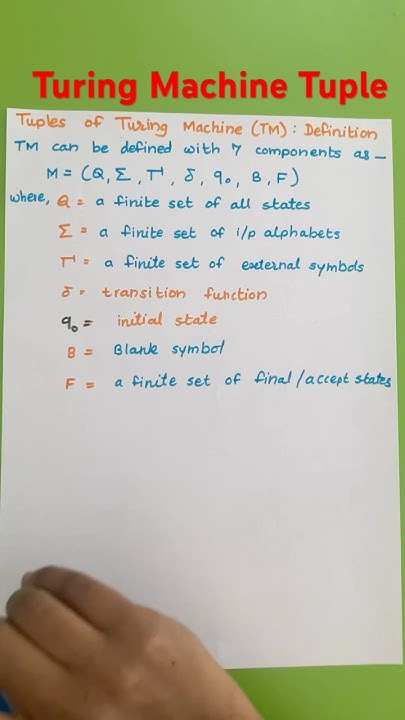 Turing Machine Tuple
Tuples of Turing Machine (TM): Definition
TM can be defined with 7 components as —
M = (Q, Σ, Γ, δ, q₀, B, F)
where, Q = a finite set of all states
Σ = a finite set of i/p alphabets
Γ = a finite set of external symbols
δ = transition function
q₀ = initial state
B = Blank symbol
F = a finite set of final/accept states